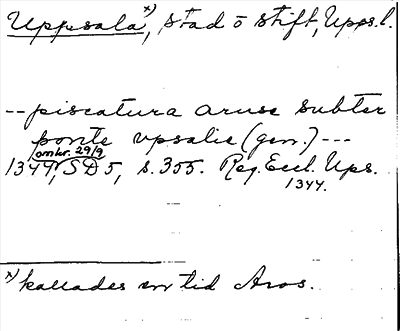 Uppsala x), stad o stift, Upps. l.
-- piscatura aruse subter
ponte vpsalie (gen.) ---
omkr. 29/9
1344, SD 5, s. 355. Reg. Eccl. Ups.
1344.
x) kallades en tid Aros.